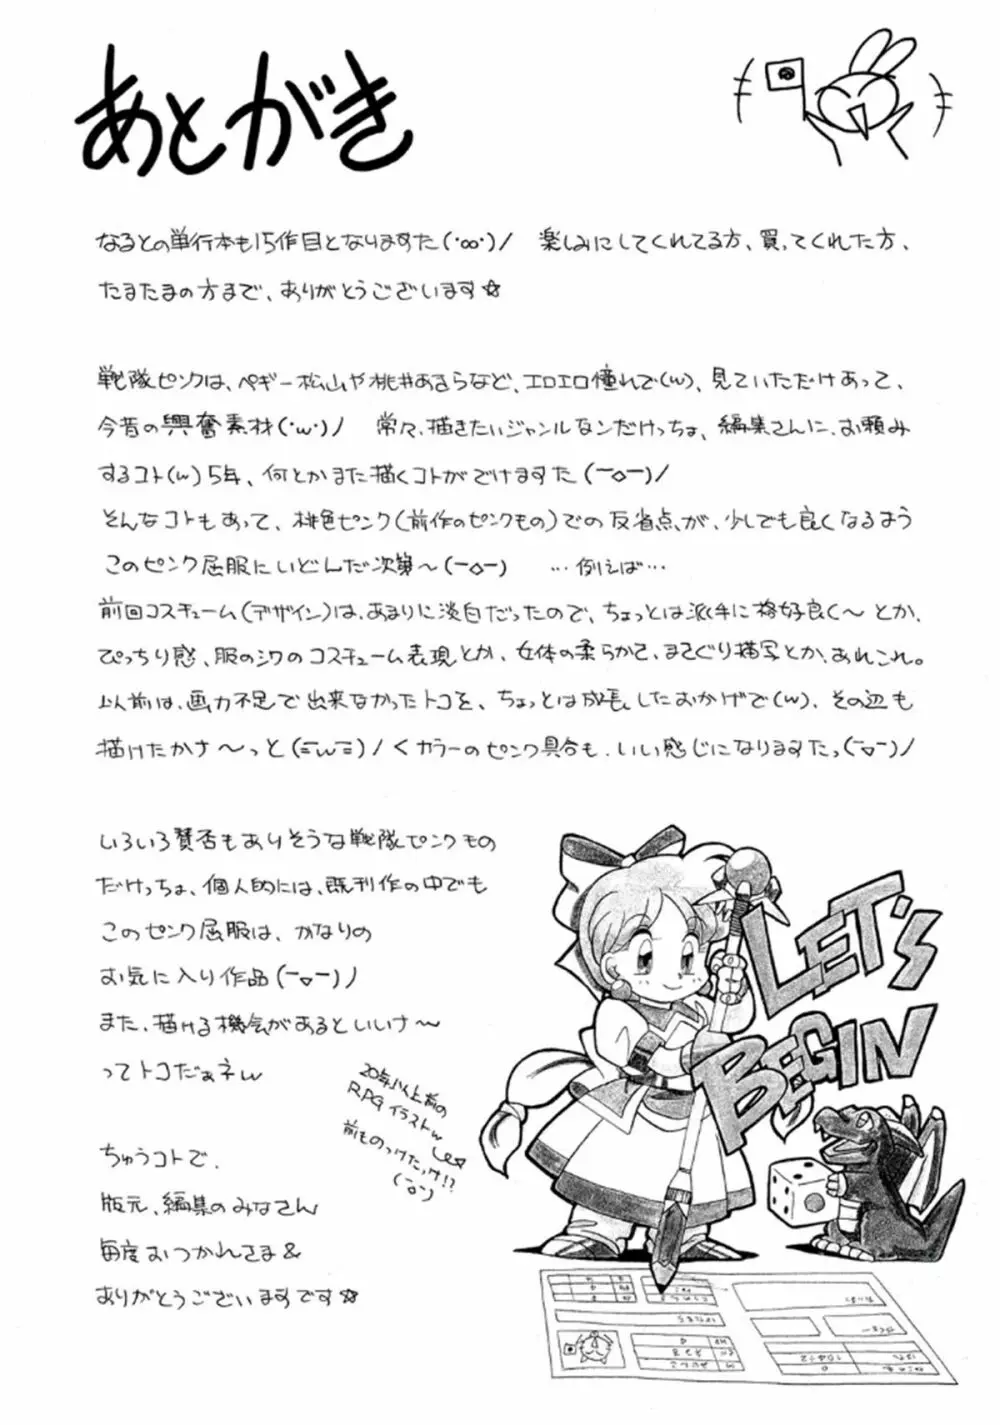 あとがき
なるとの単行本も15作目となりますた(・∞・)ノ 楽しみにしてくれてる方、買ってくれた方、
たまたまの方まで、ありがとうございます☆
戦隊ピンクは、ペギー松山や桃井あきらなど、エロエロ憧れで(w)、見ていただけあって、
今昔の興奮素材(・w・)ノ 常々、描きたいジャンルなンだけっちょ、編集さんに、お頼み
するコト(w)5年、何とかまた描くコトがでけますた(￣◇￣)ノ
そんなコトもあって、桃色ピンク(前作のピンクもの)での反省点が、少しでも良くなるよう
このピンク屈服にいどんだ次第〜(￣◇￣) …例えば…
前回コスチューム(デザイン)は、あまりに淡白だったので、ちょっとは派手に格好良く〜とか、
ぴっちり感、服のシワのコスチューム表現とか、女体の柔らかさ、まさぐり描写とか、あれこれ。
以前は、画力不足で出来なかったトコを、ちょっとは成長したおかげで(w)、その辺も
描けたかナ〜っと(ΞwΞ)ノくカラーのピンク具合も、いい感じになりますたっ(￣▽￣)ノ
いろいろ賛否もありそうな戦隊ピンクもの
だけっちょ、個人的には、既刊作の中でも
このピンク屈服は、かなりの
お気に入り作品(￣▽￣)ノ
また、描ける機会があるといいナ〜
ってトコだぁネw
20年以上前の
RPGイラストw
前ものっけたっけ!?
(￣o￣)
ちゅうコトで、
版元、編集のみなさん
毎度おつかれさま&
ありがとうございますです☆
LET'S
BEGIN